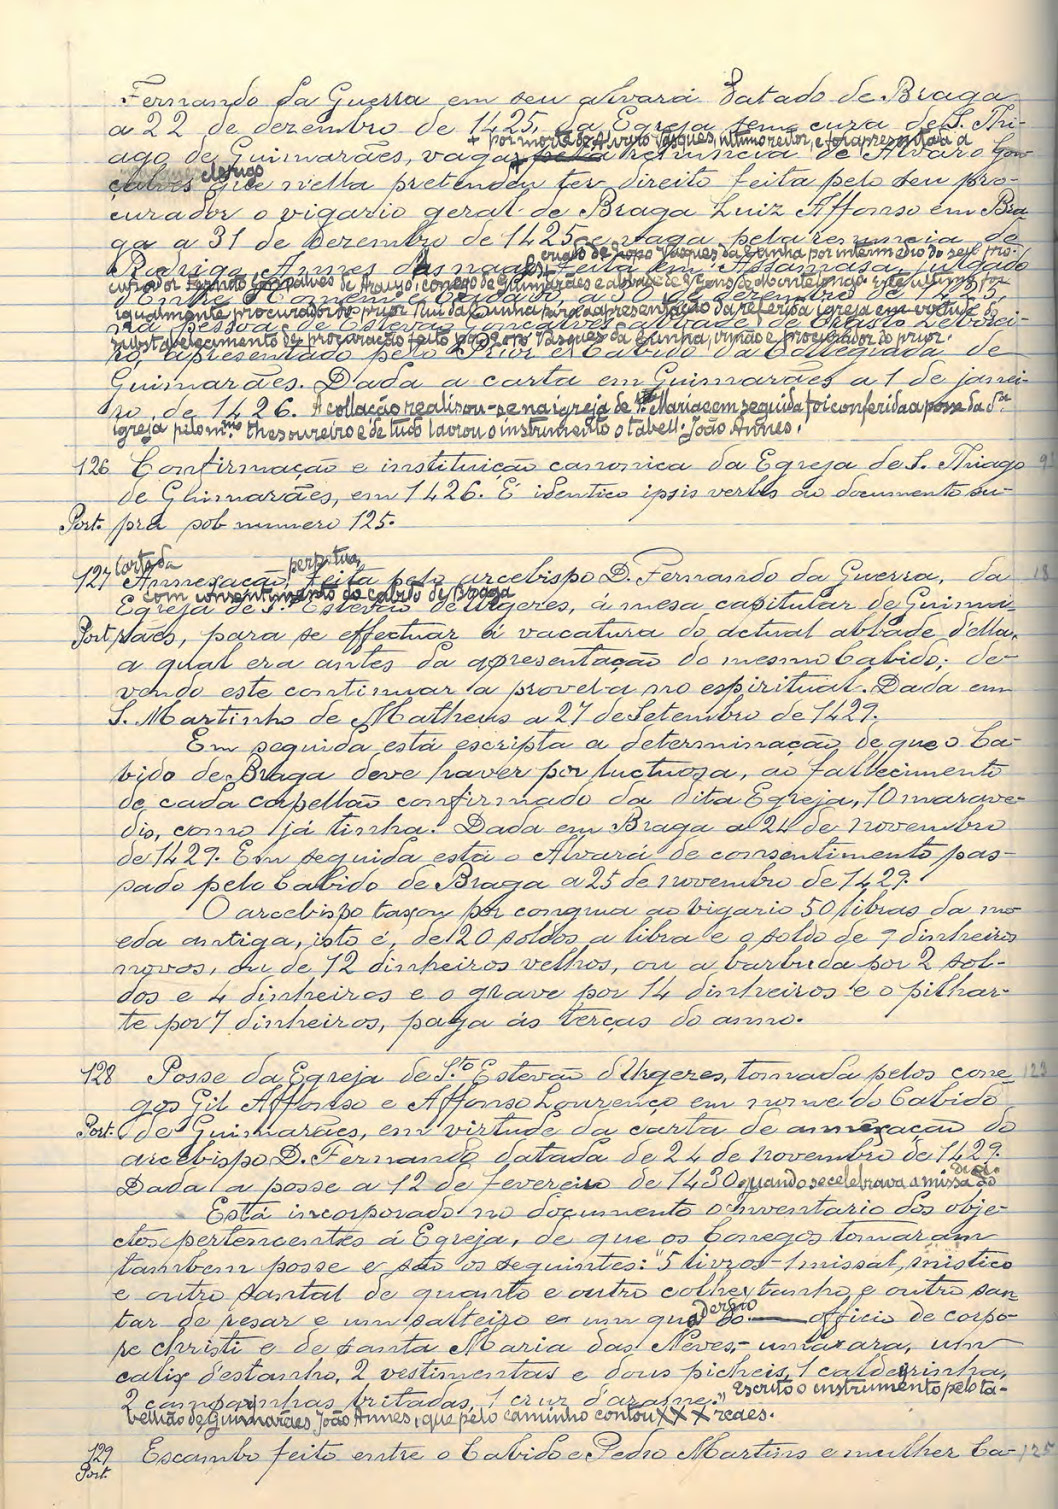 Fernando da Guerra em seu alvará datado de Braga
a 22 de dezembro de 1425, da Egreja sem cura de S. Thi-
+ por morte de Alvaro Vasques, ultimo reitor, e fora presentada a
ago de Guimarães, vaga pela renuncia de Alvaro Gon-
clerigo
çalves que n'ella pretendeu ter direito feita pelo seu pro-
curador o vigario geral de Braga Luiz Affonso em Bra-
ga a 31 de Dezembro de 1425 e vaga pela renuncia de
criado de Lopo Vasques da Cunha por intermedio do seu pro-
Rodrigo Annes feita em julgado
curador Fernão Gonçalves de Araujo, conego de Guimarães e abbade de S. Gens de Montelongo. Este ultimo foi
d'Entre Homem e Cávado, a 30 de dezembro de 1425,
igualmente procurador do prior Rui da Cunha para a apresentação da referida igreja em virtude de
na pessoa de Estevão Gonçalves abbade de Crasto Leborei-
substabelecimento de procuração feito por Lopo Vasques da Cunha, irmão e procurador do prior.
ro, apresentado pelo Prior e Cabido da Collegiada de
Guimarães. Dada a carta em Guimarães a 1 de janei-
ro de 1426. A collação realisou-se na igreja de S.ta Maria e em seguida foi conferida a posse da d.ta
igreja pelo m.mo thesoureiro e de tudo lavrou o instrumento o tabell. João Annes.
126 Confirmação e instituição canonica da Egreja de S. Thiago
de Guimarães, em 1426. É identico ipsis verbis ao documento su-
Port. pra sob numero 125.
carta da perpetua,
127 Annexação, feita pelo arcebispo D. Fernando da Guerra, da
com consentimento do cabido de Braga
Egreja de S.to Estevão de Urgeres, á mesa capitular de Guima-
Port. rães, para se effectuar á vacatura do actual abbade d'ella,
a qual era antes da apresentação do mesmo Cabido; de-
vendo este continuar a provel-a no espiritual. Dada em
S. Martinho de Matheus a 27 de Setembro de 1429.
Em seguida está escripta a determinação de que o Ca-
bido de Braga deve haver por luctuosa, ao fallecimento
de cada capellão confirmado da dita Egreja, 10 marave-
dis, como já tinha. Dada em Braga a 24 de novembro
de 1429. Em seguida está o Alvará de consentimento pas-
sado pelo Cabido de Braga a 25 de novembro de 1429.
O arcebispo taxou por congrua ao vigario 50 libras da mo-
eda antiga, isto é, de 20 soldos a libra e o soldo de 9 dinheiros
novos, ou de 12 dinheiros velhos, ou a barbuda por 2 sol-
dos e 4 dinheiros e o grave por 14 dinheiros e o pilhar-
te por 7 dinheiros, paga ás terças do anno.
128 Posse da Egreja de S.to Estevão d'Urgeres, tomada pelos cone-
gos Gil Affonso e Affonso Lourenço em nome do Cabido
Port. de Guimarães, em virtude da carta de annexação do
arcebispo D. Fernando datada de 24 de novembro de 1429.
Dada a posse a 12 de fevereiro de 1430 quando se celebrava a missa do dia.
Está incorporado no documento o inventario dos obje-
ctos pertencentes á Egreja, de que os Conegos tomaram
tambem posse e são os seguintes: "5 livros - 1 missal, mistico
e outro santal de quanto e outro colheytanho e outro san-
tar de resar e um salteiro e um quaderno do officio de corpo-
re christi e de santa Maria das Neves, - uma ara, um
calix d'estanho, 2 vestimentas e dous picheis, 1 caldeirinha,
2 campanhas britadas, 1 cruz d'arame." Escrito o instrumento pelo ta-
bellião de Guimarães João Annes, que pelo caminho contou XXX reaes.
129 Escambo feito entre o Cabido e Pedro Martins e mulher Ca-
Port.